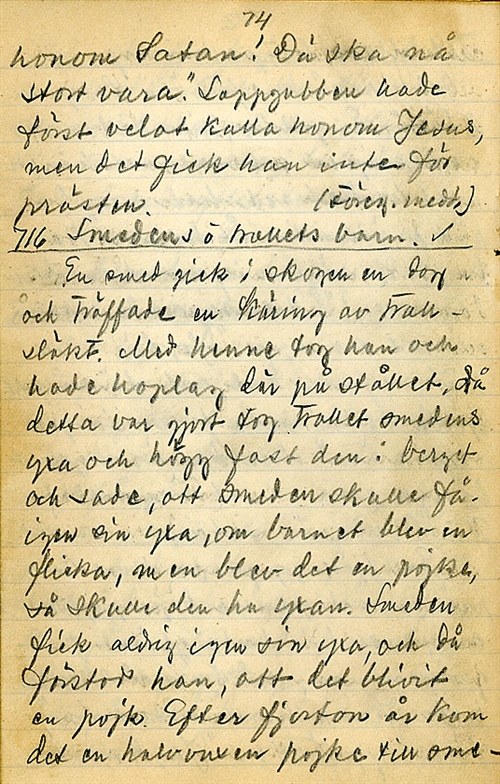 74
honom Satan! Då ska nå
stort vara". Lappgubben hade
först velat kalla honom Jesus,
men det fick han inte för
prästen. (Föreg. medd.)
716 Smedens o trollets barn. ✓
En smed gick i skogen en dag
och träffade en käring av troll-
släkt. Med henne tog han och
hade hoplag där på stället. Då
detta var gjort tog trollet smedens
yxa och högg fast den i berget
och sade, att smeden skulle få
igen sin yxa, om barnet blev en
flicka, men blev det en pojke,
så skulle den ha yxan. Smeden
fick aldrig igen sin yxa, och då
förstod han, att det blivit
en pojk. Efter fjorton år kom
det en halvvuxen pojke till sme-